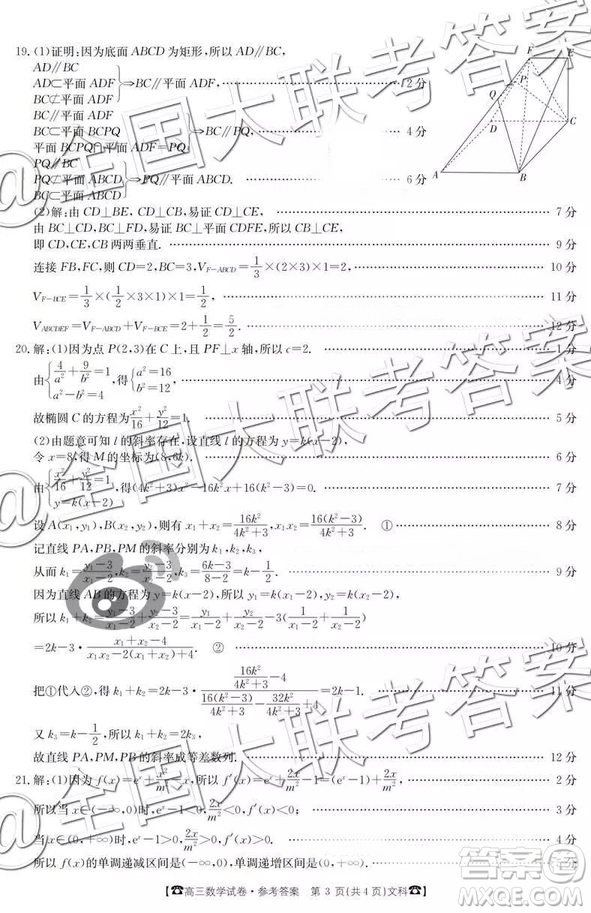 19. (1)证明:因为底面 ABCD 为矩形,所以 AD∥BC,
AD∥BC
AD⊂平面 ADF
BC⊄平面 ADF
}⇒BC∥平面 ADF ………… 2 分
BC⊂平面 BCPQ
平面 BCPQ∩平面 ADF=PQ
}⇒BC∥PQ ………… 4 分
PQ∥BC
PQ⊄平面 ABCD
BC⊂平面 ABCD
}⇒PQ∥平面 ABCD. ………… 6 分
F E P Q D C A B
(2)解:由 CD⊥BE, CD⊥CB,易证 CD⊥CF, ………… 7 分
由 BC⊥CD,BC⊥FD,易证 BC⊥平面 CDFE,所以 BC⊥CF,
即 CD,CF,BC 两两垂直. ………… 9 分
连接 FB,FC,则 CD=2,BC=3,V_{F-ABCD}=1/3×(2×3)×1=2, ………… 10 分
V_{F-BCE}=1/3×(1/2×3×1)×1=1/2, ………… 11 分
V_{ABCDEF}=V_{F-ABCD}+V_{F-BCE}=2+1/2=5/2. ………… 12 分
20. 解:(1)因为点 P(2,3)在 C 上,且 PF⊥x 轴,所以 c=2. ………… 1 分
由{4/a²+9/b²=1, a²-b²=4,得{a²=16, b²=12, ………… 4 分
故椭圆 C 的方程为x²/16+y²/12=1. ………… 5 分
(2)由题意可知 l 的斜率存在,设直线 l 的方程为 y=k(x-2),
令 x=8,得 M 的坐标为(8,6k). ………… 6 分
由{x²/16+y²/12=1, y=k(x-2),得(4k²+3)x²-16k²x+16(k²-3)=0. ………… 7 分
设 A(x₁,y₁),B(x₂,y₂),则有 x₁+x₂=16k²/(4k²+3),x₁x₂=16(k²-3)/(4k²+3). ① ………… 8 分
记直线 PA,PB,PM 的斜率分别为 k₁,k₂,k₃,
从而 k₁=(y₁-3)/(x₁-2),k₂=(y₂-3)/(x₂-2),k₃=(6k-3)/(8-2)=k-1/2. ………… 9 分
因为直线 AB 的方程为 y=k(x-2),所以 y₁=k(x₁-2),y₂=k(x₂-2),
所以 k₁+k₂=(y₁-3)/(x₁-2)+(y₂-3)/(x₂-2)=y₁/(x₁-2)+y₂/(x₂-2)-3(1/(x₁-2)+1/(x₂-2))
=2k-3·(x₁+x₂-4)/(x₁x₂-2(x₁+x₂)+4). ② ………… 10 分
把①代入②,得 k₁+k₂=2k-3·(16k²/(4k²+3)-4)/(16(k²-3)/(4k²+3)-32k²/(4k²+3)+4)=2k-1. ………… 11 分
又 k₃=k-1/2,所以 k₁+k₂=2k₃,
故直线 PA,PM,PB 的斜率成等差数列. ………… 12 分
21. 解:(1)因为 f(x)=eˣ+x²/m²-x,所以 f′(x)=eˣ+2x/m²-1=(eˣ-1)+2x/m². ………… 2 分
所以当 x∈(-∞,0)时,eˣ-1<0,2x/m²<0,f′(x)<0; ………… 3 分
当 x∈(0,+∞)时,eˣ-1>0,2x/m²>0,f′(x)>0. ………… 4 分
所以 f(x)的单调递减区间是(-∞,0),单调递增区间是(0,+∞). ………… 5 分
☎高三数学试卷·参考答案 第 3 页(共 4 页)文科☎
@全国大联考答案